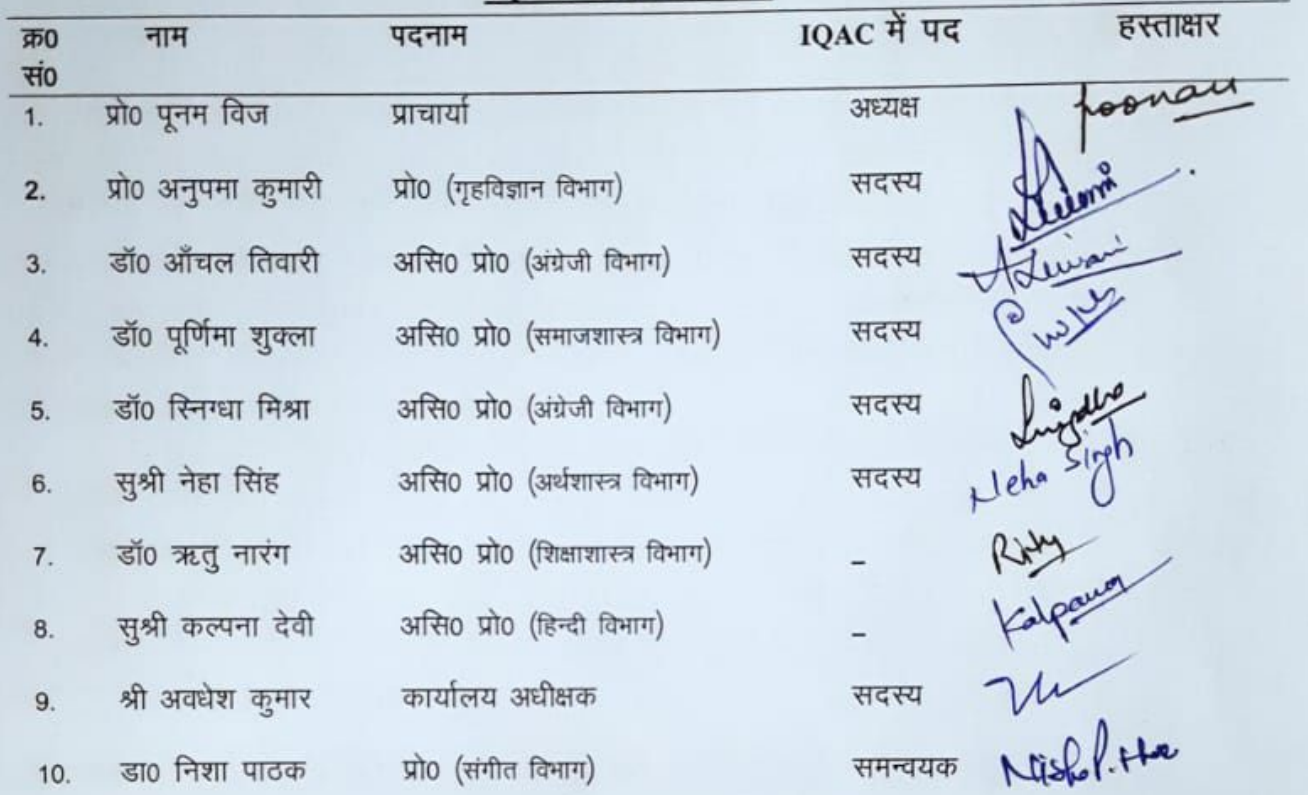 क्र0 नाम पदनाम IQAC में पद हस्ताक्षर
सं0
1. प्रो0 पूनम विज प्राचार्या अध्यक्ष Poonam
2. प्रो0 अनुपमा कुमारी प्रो0 (गृहविज्ञान विभाग) सदस्य
3. डॉ0 आँचल तिवारी असि0 प्रो0 (अंग्रेजी विभाग) सदस्य ATiwari
4. डॉ0 पूर्णिमा शुक्ला असि0 प्रो0 (समाजशास्त्र विभाग) सदस्य
5. डॉ0 स्निग्धा मिश्रा असि0 प्रो0 (अंग्रेजी विभाग) सदस्य Snigdha
6. सुश्री नेहा सिंह असि0 प्रो0 (अर्थशास्त्र विभाग) सदस्य Neha Singh
7. डॉ0 ऋतु नारंग असि0 प्रो0 (शिक्षाशास्त्र विभाग) –
8. सुश्री कल्पना देवी असि0 प्रो0 (हिन्दी विभाग) – Kalpana
9. श्री अवधेश कुमार कार्यालय अधीक्षक सदस्य
10. डा0 निशा पाठक प्रो0 (संगीत विभाग) समन्वयक